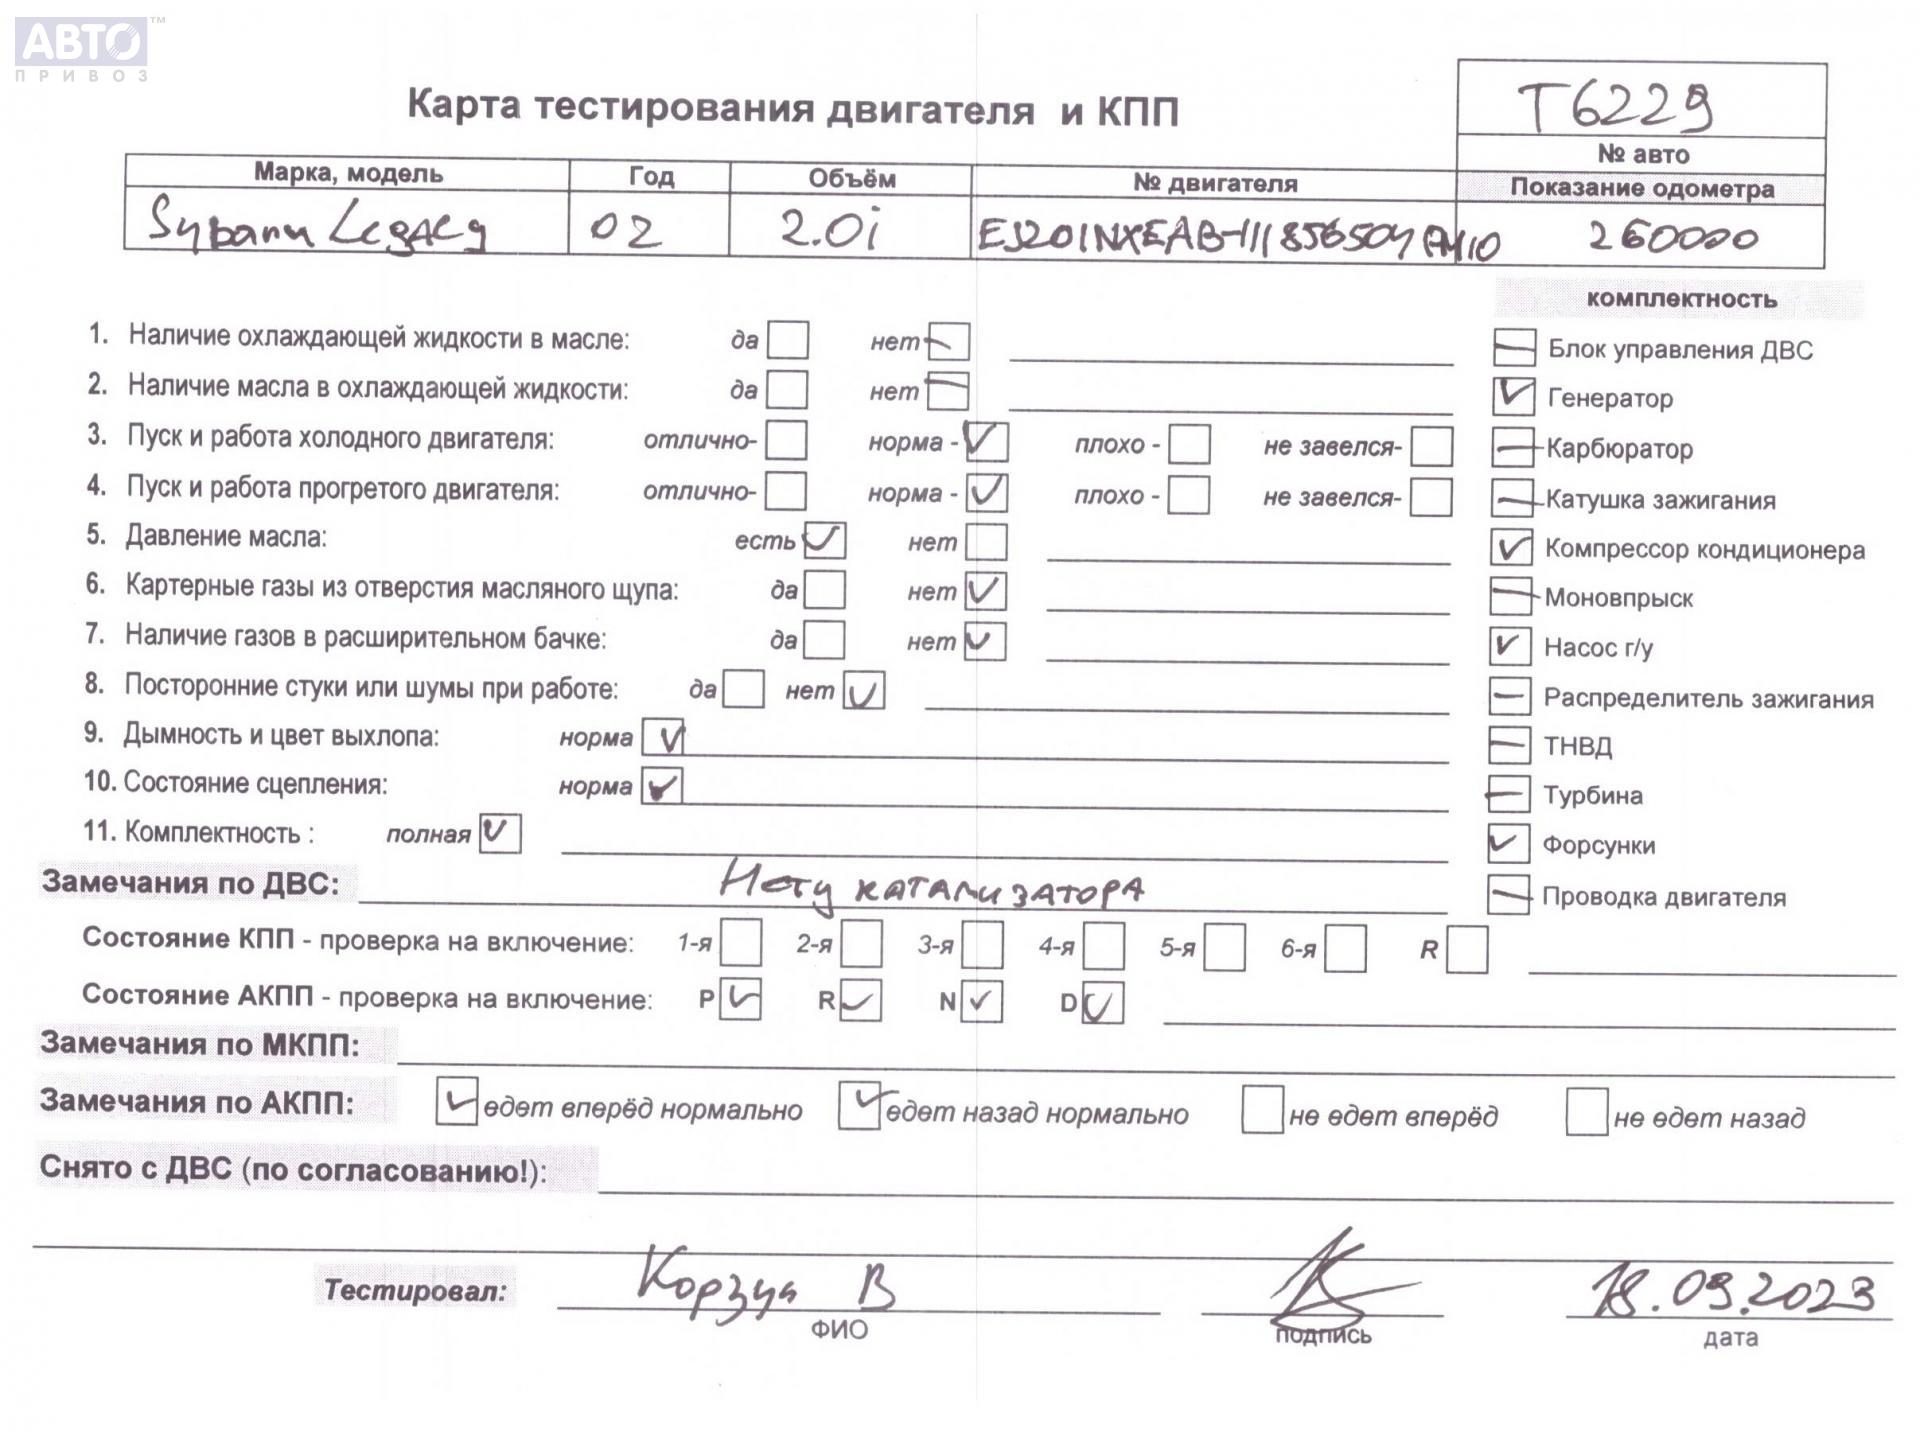 АВТО™
ПРИВОЗ
Карта тестирования двигателя и КПП
T6229
№ авто
Марка, модель Год Объём № двигателя Показание одометра
Subaru Legacy 02 2.0i 260000
комплектность
1. Наличие охлаждающей жидкости в масле: да нет
Блок управления ДВС
2. Наличие масла в охлаждающей жидкости: да нет
Генератор
3. Пуск и работа холодного двигателя: отлично- норма - плохо - не завелся-
Карбюратор
4. Пуск и работа прогретого двигателя: отлично- норма - плохо - не завелся-
Катушка зажигания
5. Давление масла: есть нет
Компрессор кондиционера
6. Картерные газы из отверстия масляного щупа: да нет
Моновпрыск
7. Наличие газов в расширительном бачке: да нет
Насос г/у
8. Посторонние стуки или шумы при работе: да нет
Распределитель зажигания
9. Дымность и цвет выхлопа: норма
ТНВД
10. Состояние сцепления: норма
Турбина
11. Комплектность : полная
Форсунки
Замечания по ДВС: Нету катализатора
Проводка двигателя
Состояние КПП - проверка на включение: 1-я 2-я 3-я 4-я 5-я 6-я R
Состояние АКПП - проверка на включение: P R N D
Замечания по МКПП:
Замечания по АКПП: едет вперёд нормально едет назад нормально не едет вперёд не едет назад
Снято с ДВС (по согласованию!):
Тестировал: Корзун В 18.09.2023
ФИО подпись дата